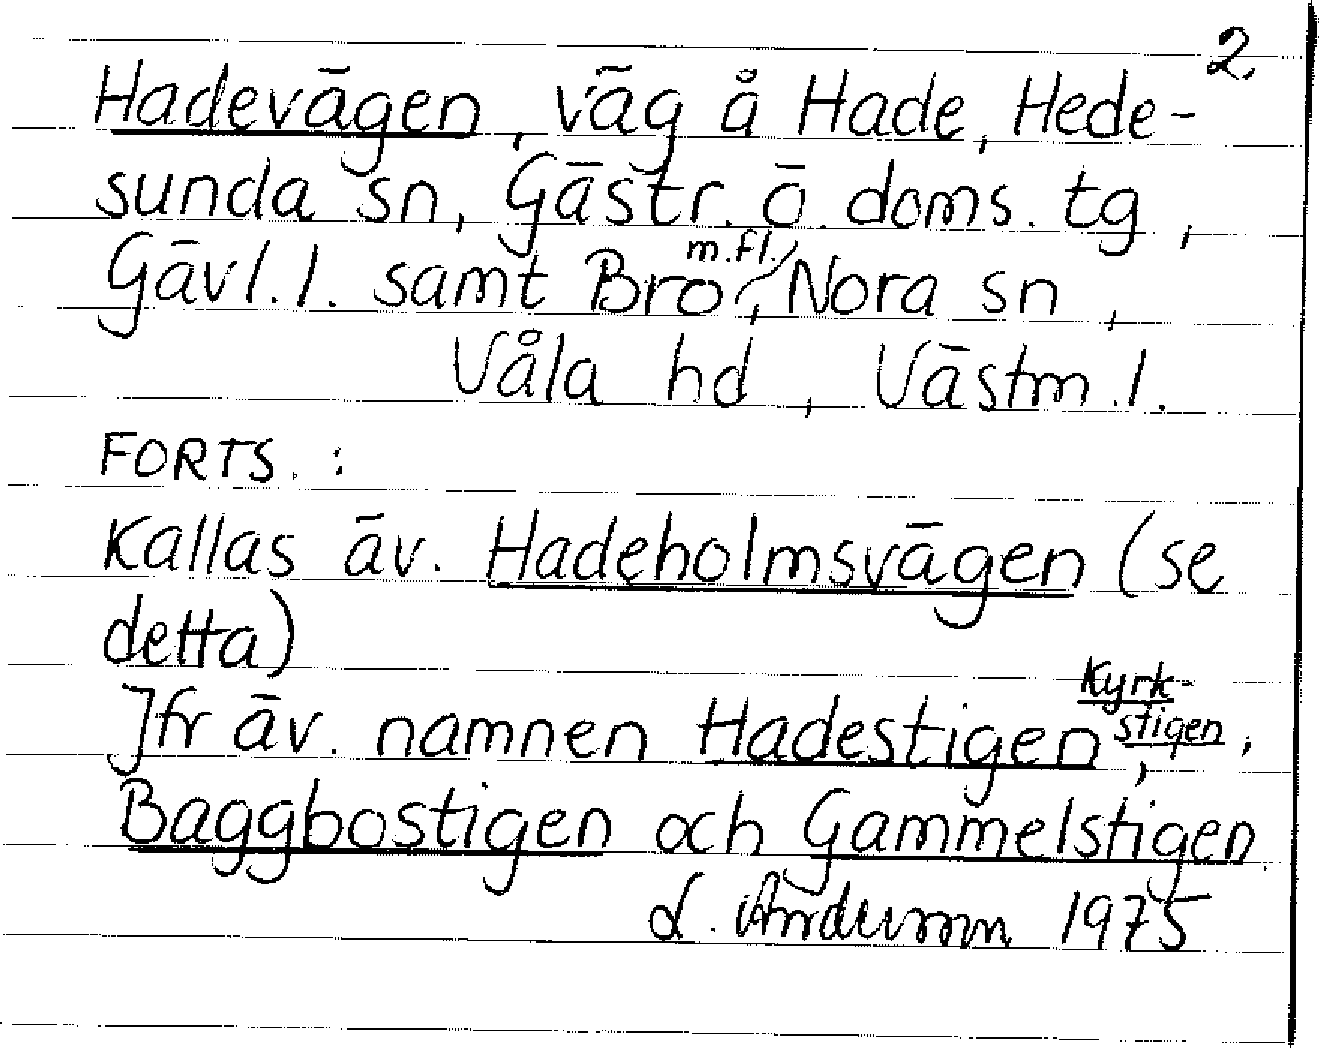 2.
Hadevägen, väg å Hade, Hede-
sunda sn, Gästr. ö. doms. tg,
Gävl. l. samt Bro m.fl., Nora sn,
Våla hd, Västm. l.
FORTS. :
Kallas äv. Hadeholmsvägen (se
detta)
Jfr äv. namnen Hadestigen, Kyrk-
stigen,
Baggbostigen och Gammelstigen.
1975